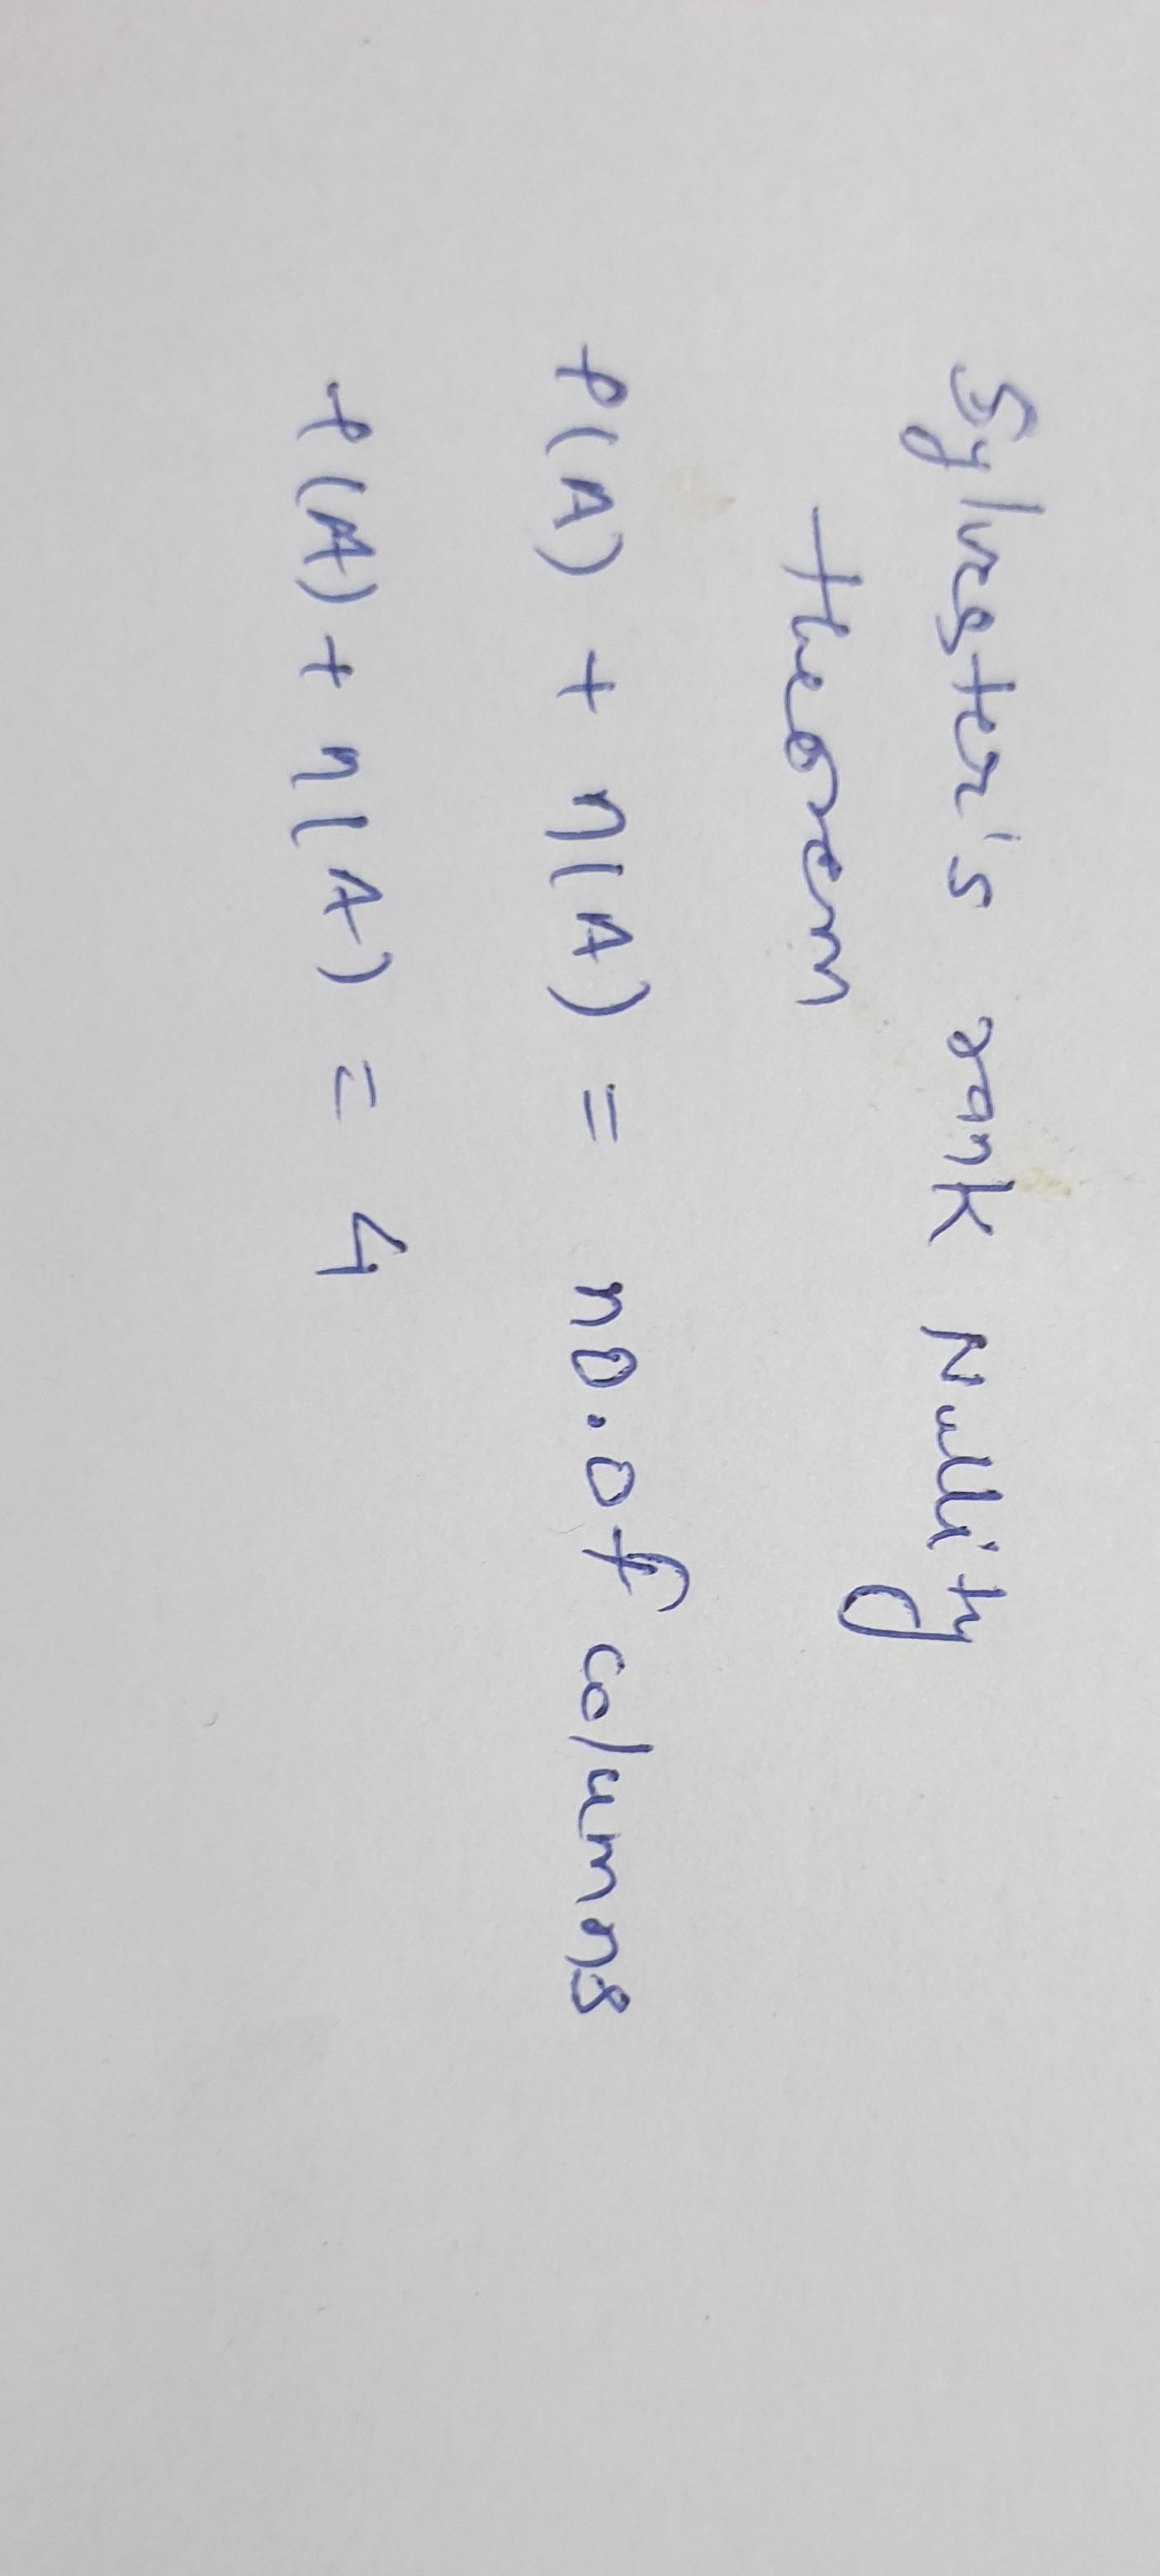 Sylvester's rank Nullity
theorem
ρ(A) + η(A) = no. of columns
ρ(A) + η(A) = 4